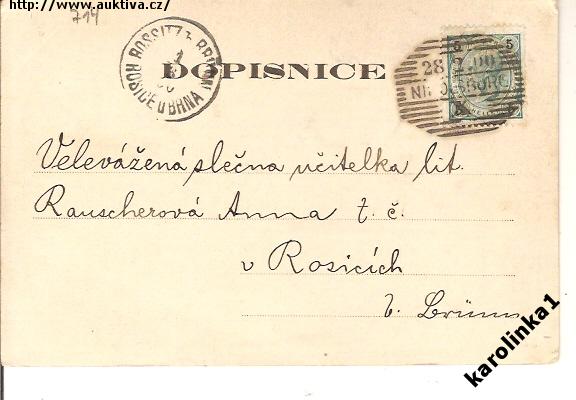 http://www.auktiva.cz/
714
ROSSITZ b. BRÜNN
ROSICE U BRNA
DOPISNICE
5
28 2 00
NIKOLSBURG
Velevážená slečna učitelka lit.
Rauscherová Anna t. č.
v Rosicích
b. Brünn
karolinka1